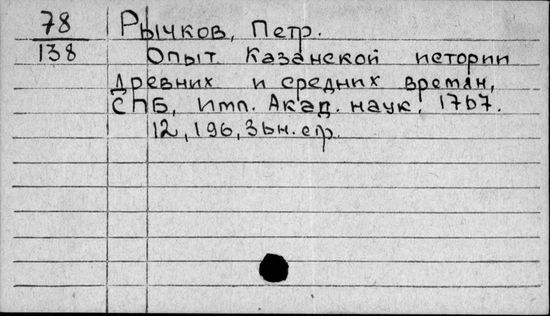 78 Рычков, Петр.
138 Опыт Казанской истории
древних и средних времян,
СПБ, Имп. Акад. наук, 1767.
12, 196, 3 ън. стр.